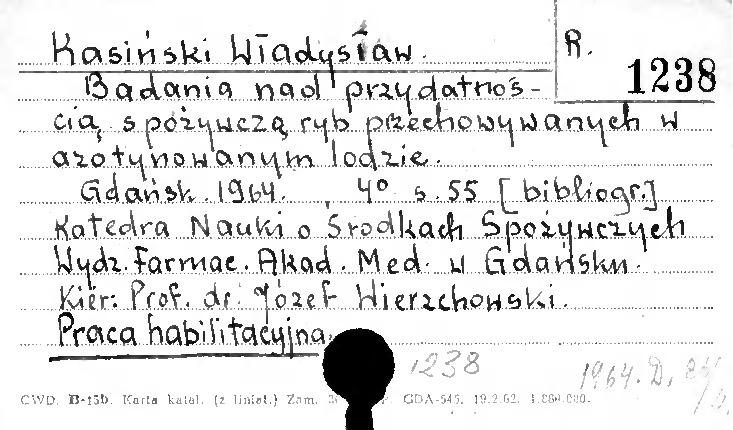 Kasiński Władysław.
R.
1238
Badania nad przydatnoś-
cią spożywczą ryb przechowywanych w
azotynowanym lodzie.
Gdańsk. 1964. , 4° s. 55 [bibliogr.]
Katedra Nauki o Środkach Spożywczych
Wydz. Farmac. Akad. Med. w Gdańsku.
Kier: Prof. dr. Józef Wierzchowski.
Praca habilitacyjna.
1238
1964. D.
CWD. B-15b. Karta katal. (z liniat.) Zam. GDA-545. 19.2.62. 1.860.000.